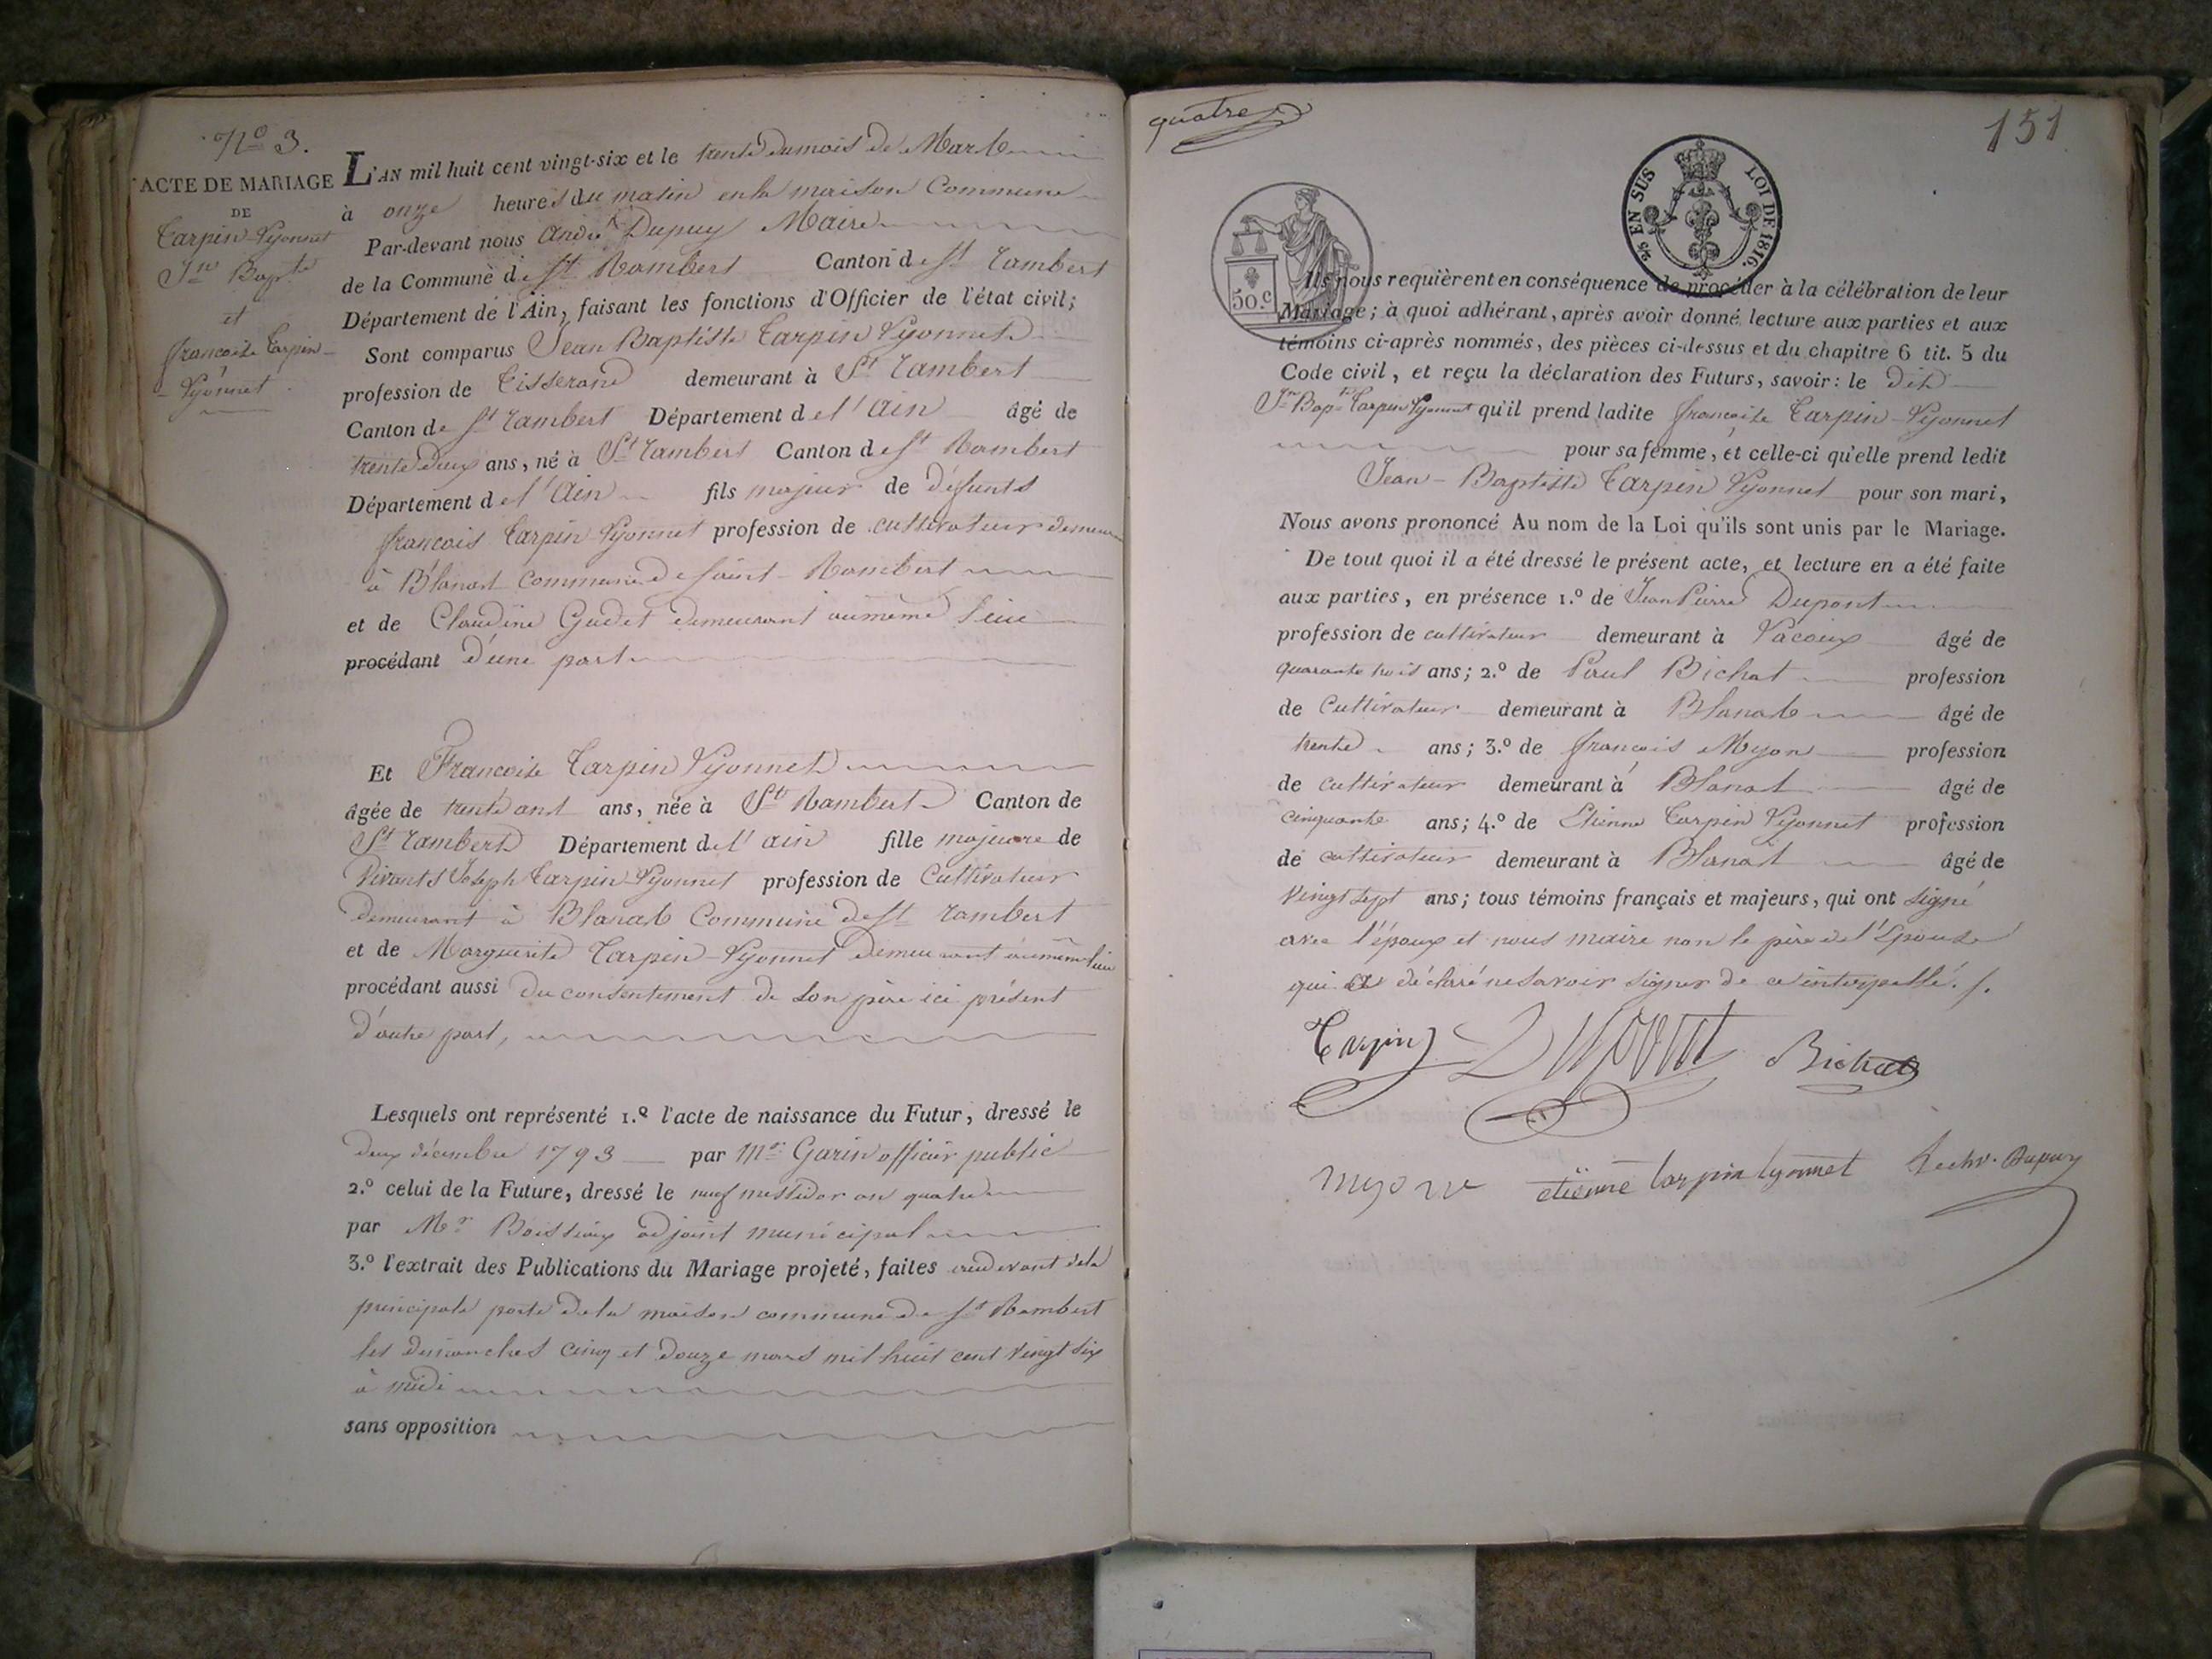 N.º 3.
ACTE DE MARIAGE
DE
Carpin-Lyonnet
Jn Bapte
et
françoise Carpin-
Lyonnet.
L'AN mil huit cent vingt-six et le trente du mois de Mars
à onze heures du matin en la maison Commune
Par-devant nous André Dupuy Maire
de la Commune de St Rambert Canton de St Rambert
Département de l'Ain, faisant les fonctions d'Officier de l'état civil;
Sont comparus Jean Baptiste Carpin Lyonnet
profession de Tisserand demeurant à St Rambert
Canton de St Rambert Département de l'Ain âgé de
trente deux ans, né à St Rambert Canton de St Rambert
Département de l'Ain fils majeur de défunts
françois Carpin Lyonnet profession de cultivateur demeurant
à Blanas Commune de Saint-Rambert
et de Claudine Gudet demeurant au même lieu
procédant d'une part
Et Françoise Carpin Lyonnet
âgée de trente ans ans, née à St Rambert Canton de
St Rambert Département de l'ain fille majeure de
vivants Joseph Carpin-Lyonnet profession de Cultivateur
demeurant à Blanas Commune de St Rambert
et de Marguerite Carpin-Lyonnet demeurant au même lieu
procédant aussi du consentement de son père ici présent
d'autre part,
Lesquels ont représenté 1.º l'acte de naissance du Futur, dressé le
deux décembre 1793 par Mr Garin officier public
2.º celui de la Future, dressé le neuf messidor an quatre
par Mr Boissieux adjoint municipal
3.º l'extrait des Publications du Mariage projeté, faites au devant de la
principale porte de la maison commune de St Rambert
les dimanches cinq et douze mars mil huit cent vingt six
à midi
sans opposition
quatre
151
2/5 EN SUS LOI DE 1816.
50.c
Ils nous requièrent en conséquence de procéder à la célébration de leur
Mariage; à quoi adhérant, après avoir donné lecture aux parties et aux
témoins ci-après nommés, des pièces ci-dessus et du chapitre 6 tit. 5 du
Code civil, et reçu la déclaration des Futurs, savoir: le dit
Jn Bapte Carpin Lyonnet qu'il prend ladite françoise Carpin-Lyonnet
pour sa femme, et celle-ci qu'elle prend ledit
Jean-Baptiste Carpin Lyonnet pour son mari,
Nous avons prononcé Au nom de la Loi qu'ils sont unis par le Mariage.
De tout quoi il a été dressé le présent acte, et lecture en a été faite
aux parties, en présence 1.º de Jean Pierre Dupont
profession de cultivateur demeurant à Vacoux âgé de
quarante huit ans; 2.º de Paul Bichat profession
de Cultivateur demeurant à Blanas âgé de
trente ans; 3.º de françois Myon profession
de cultivateur demeurant à Blanas âgé de
cinquante ans; 4.º de Etienne Carpin Lyonnet profession
de cultivateur demeurant à Blanas âgé de
vingt sept ans; tous témoins français et majeurs, qui ont signé
avec l'époux et nous maire non le père de l'Epouse
qui a déclaré ne savoir signer de ce interpellé.
Carpin Dupont Bichat
myon etienne Carpin lyonnet Dupuy